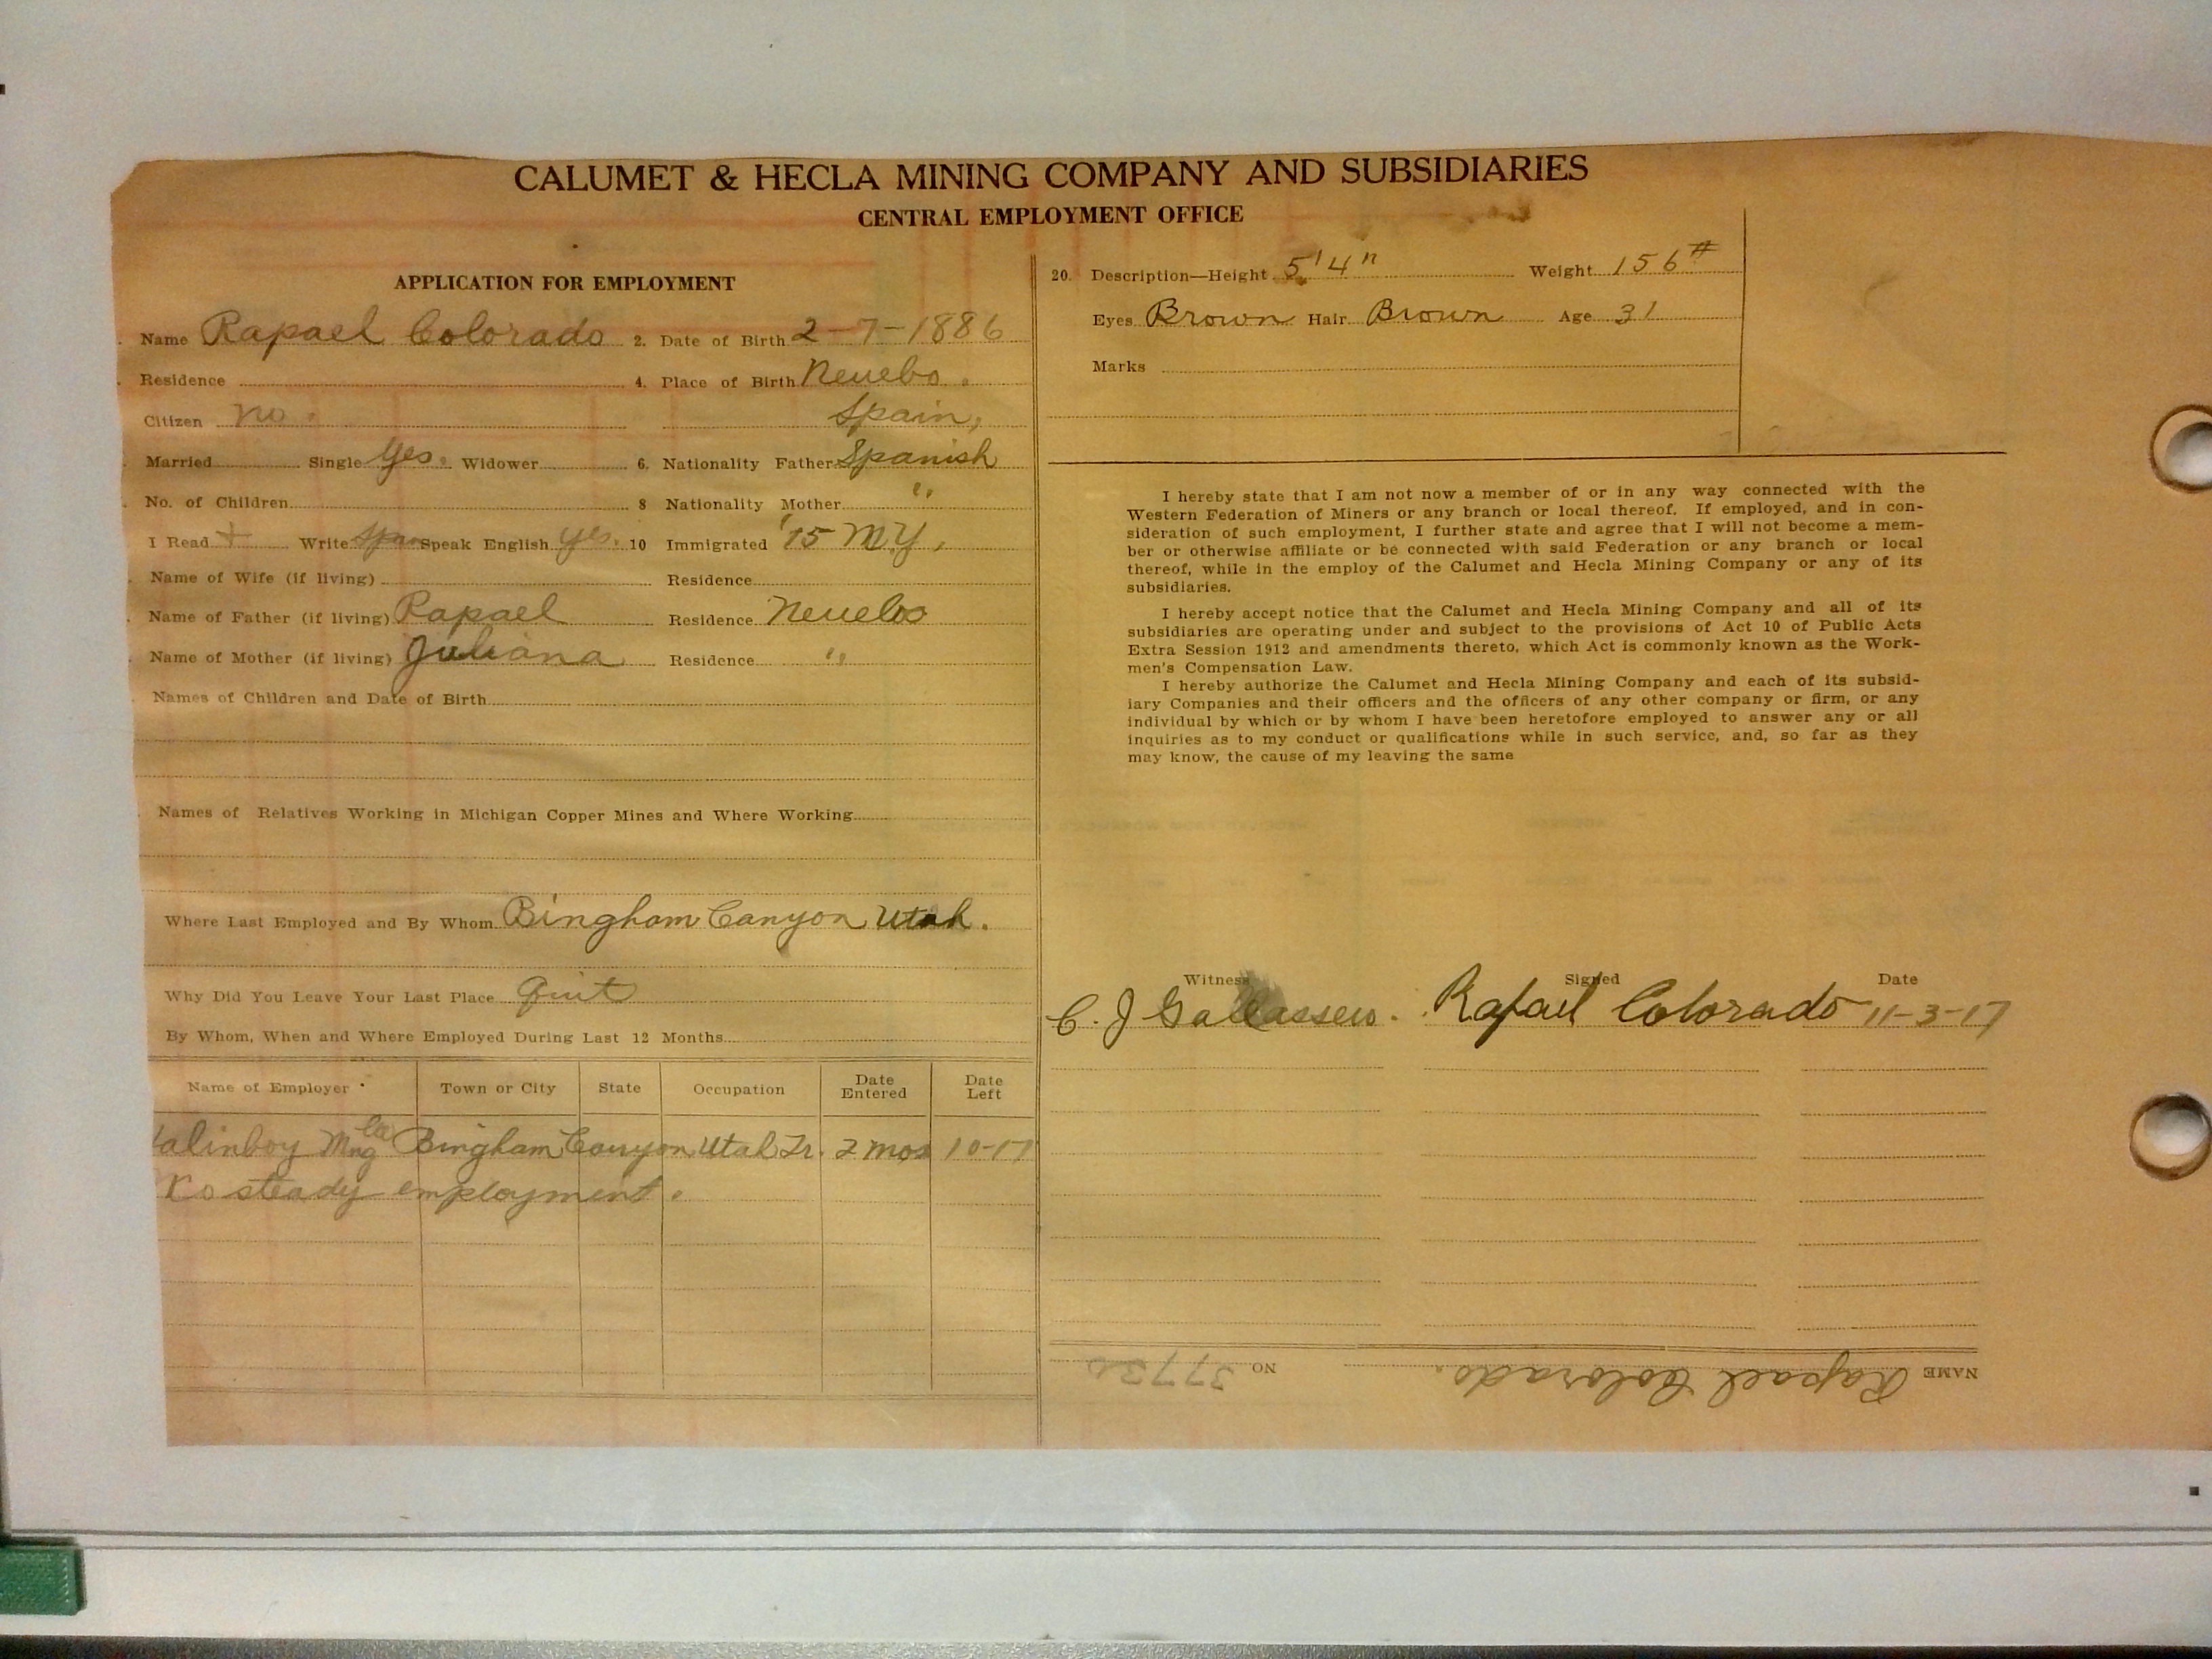 CALUMET & HECLA MINING COMPANY AND SUBSIDIARIES
CENTRAL EMPLOYMENT OFFICE
APPLICATION FOR EMPLOYMENT
Name Rapael Colorado 2. Date of Birth 2-7-1886
Residence 4. Place of Birth Neuebo.
Citizen no. Spain,
Married Single yes. Widower 6. Nationality Father Spanish
No. of Children 8 Nationality Mother "
I Read + Write Span Speak English yes. 10 Immigrated '15 M.Y,
Name of Wife (if living) Residence
Name of Father (if living) Rapael Residence Neuebo
Name of Mother (if living) Juliana Residence "
Names of Children and Date of Birth
Names of Relatives Working in Michigan Copper Mines and Where Working
Where Last Employed and By Whom Bingham Canyon Utah.
Why Did You Leave Your Last Place Quit
By Whom, When and Where Employed During Last 12 Months
Name of Employer Town or City State Occupation Date Entered Date Left
Mng Co Bingham Canyon Utah Tr. 2 mos 10-17
No steady employment.
20. Description—Height 5'4" Weight 156#
Eyes Brown Hair Brown Age 31
Marks
I hereby state that I am not now a member of or in any way connected with the
Western Federation of Miners or any branch or local thereof. If employed, and in con-
sideration of such employment, I further state and agree that I will not become a mem-
ber or otherwise affiliate or be connected with said Federation or any branch or local
thereof, while in the employ of the Calumet and Hecla Mining Company or any of its
subsidiaries.
I hereby accept notice that the Calumet and Hecla Mining Company and all of its
subsidiaries are operating under and subject to the provisions of Act 10 of Public Acts
Extra Session 1912 and amendments thereto, which Act is commonly known as the Work-
men's Compensation Law.
I hereby authorize the Calumet and Hecla Mining Company and each of its subsid-
iary Companies and their officers and the officers of any other company or firm, or any
individual by which or by whom I have been heretofore employed to answer any or all
inquiries as to my conduct or qualifications while in such service, and, so far as they
may know, the cause of my leaving the same
Witness Signed Date
C. J Rafael Colorado 11-3-17
NAME Rapael Colorado. NO